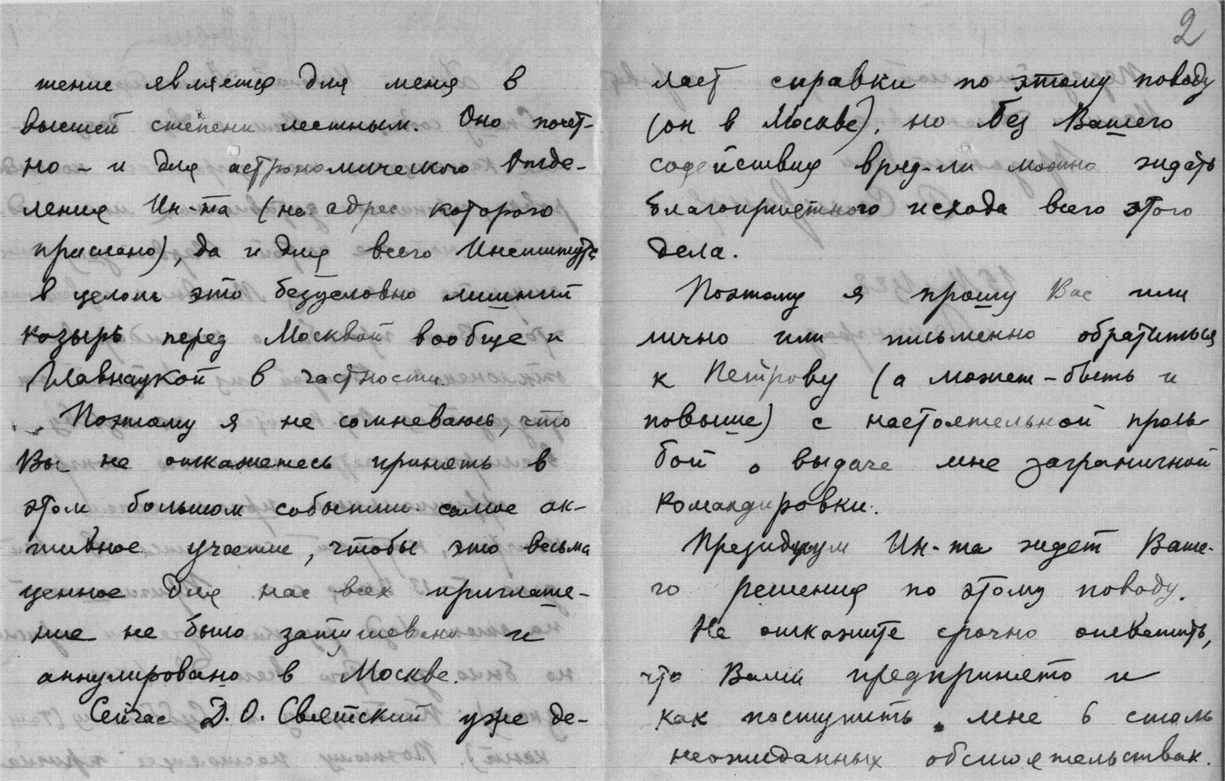 жение является для меня в
высшей степени лестным. Оно почет-
но – и для астрономического Отде-
ления Ин-та (на адрес которого
прислано), да и для всего Института
в целом это безусловно лишний
козырь перед Москвой вообще и
Главнаукой в частности.
Поэтому я не сомневаюсь, что
Вы не откажетесь принять в
этом большом событии самое ак-
тивное участие, чтобы это весьма
ценное для нас всех приглаше-
ние не было затушевано и
аннулировано в Москве.
Сейчас Д. О. Святский уже де-
2
лает справки по этому поводу
(он в Москве), но без Вашего
содействия вряд-ли можно ждать
благоприятного исхода всего этого
дела.
Поэтому я прошу Вас или
лично или письменно обратиться
к Петрову (а может-быть и
повыше) с настоятельной прось-
бой о выдаче мне заграничной
командировки.
Президиум Ин-та ждет Ваше-
го решения по этому поводу.
Не откажите срочно ответить,
что Вами предпринято и
как поступить мне в столь
неожиданных обстоятельствах.